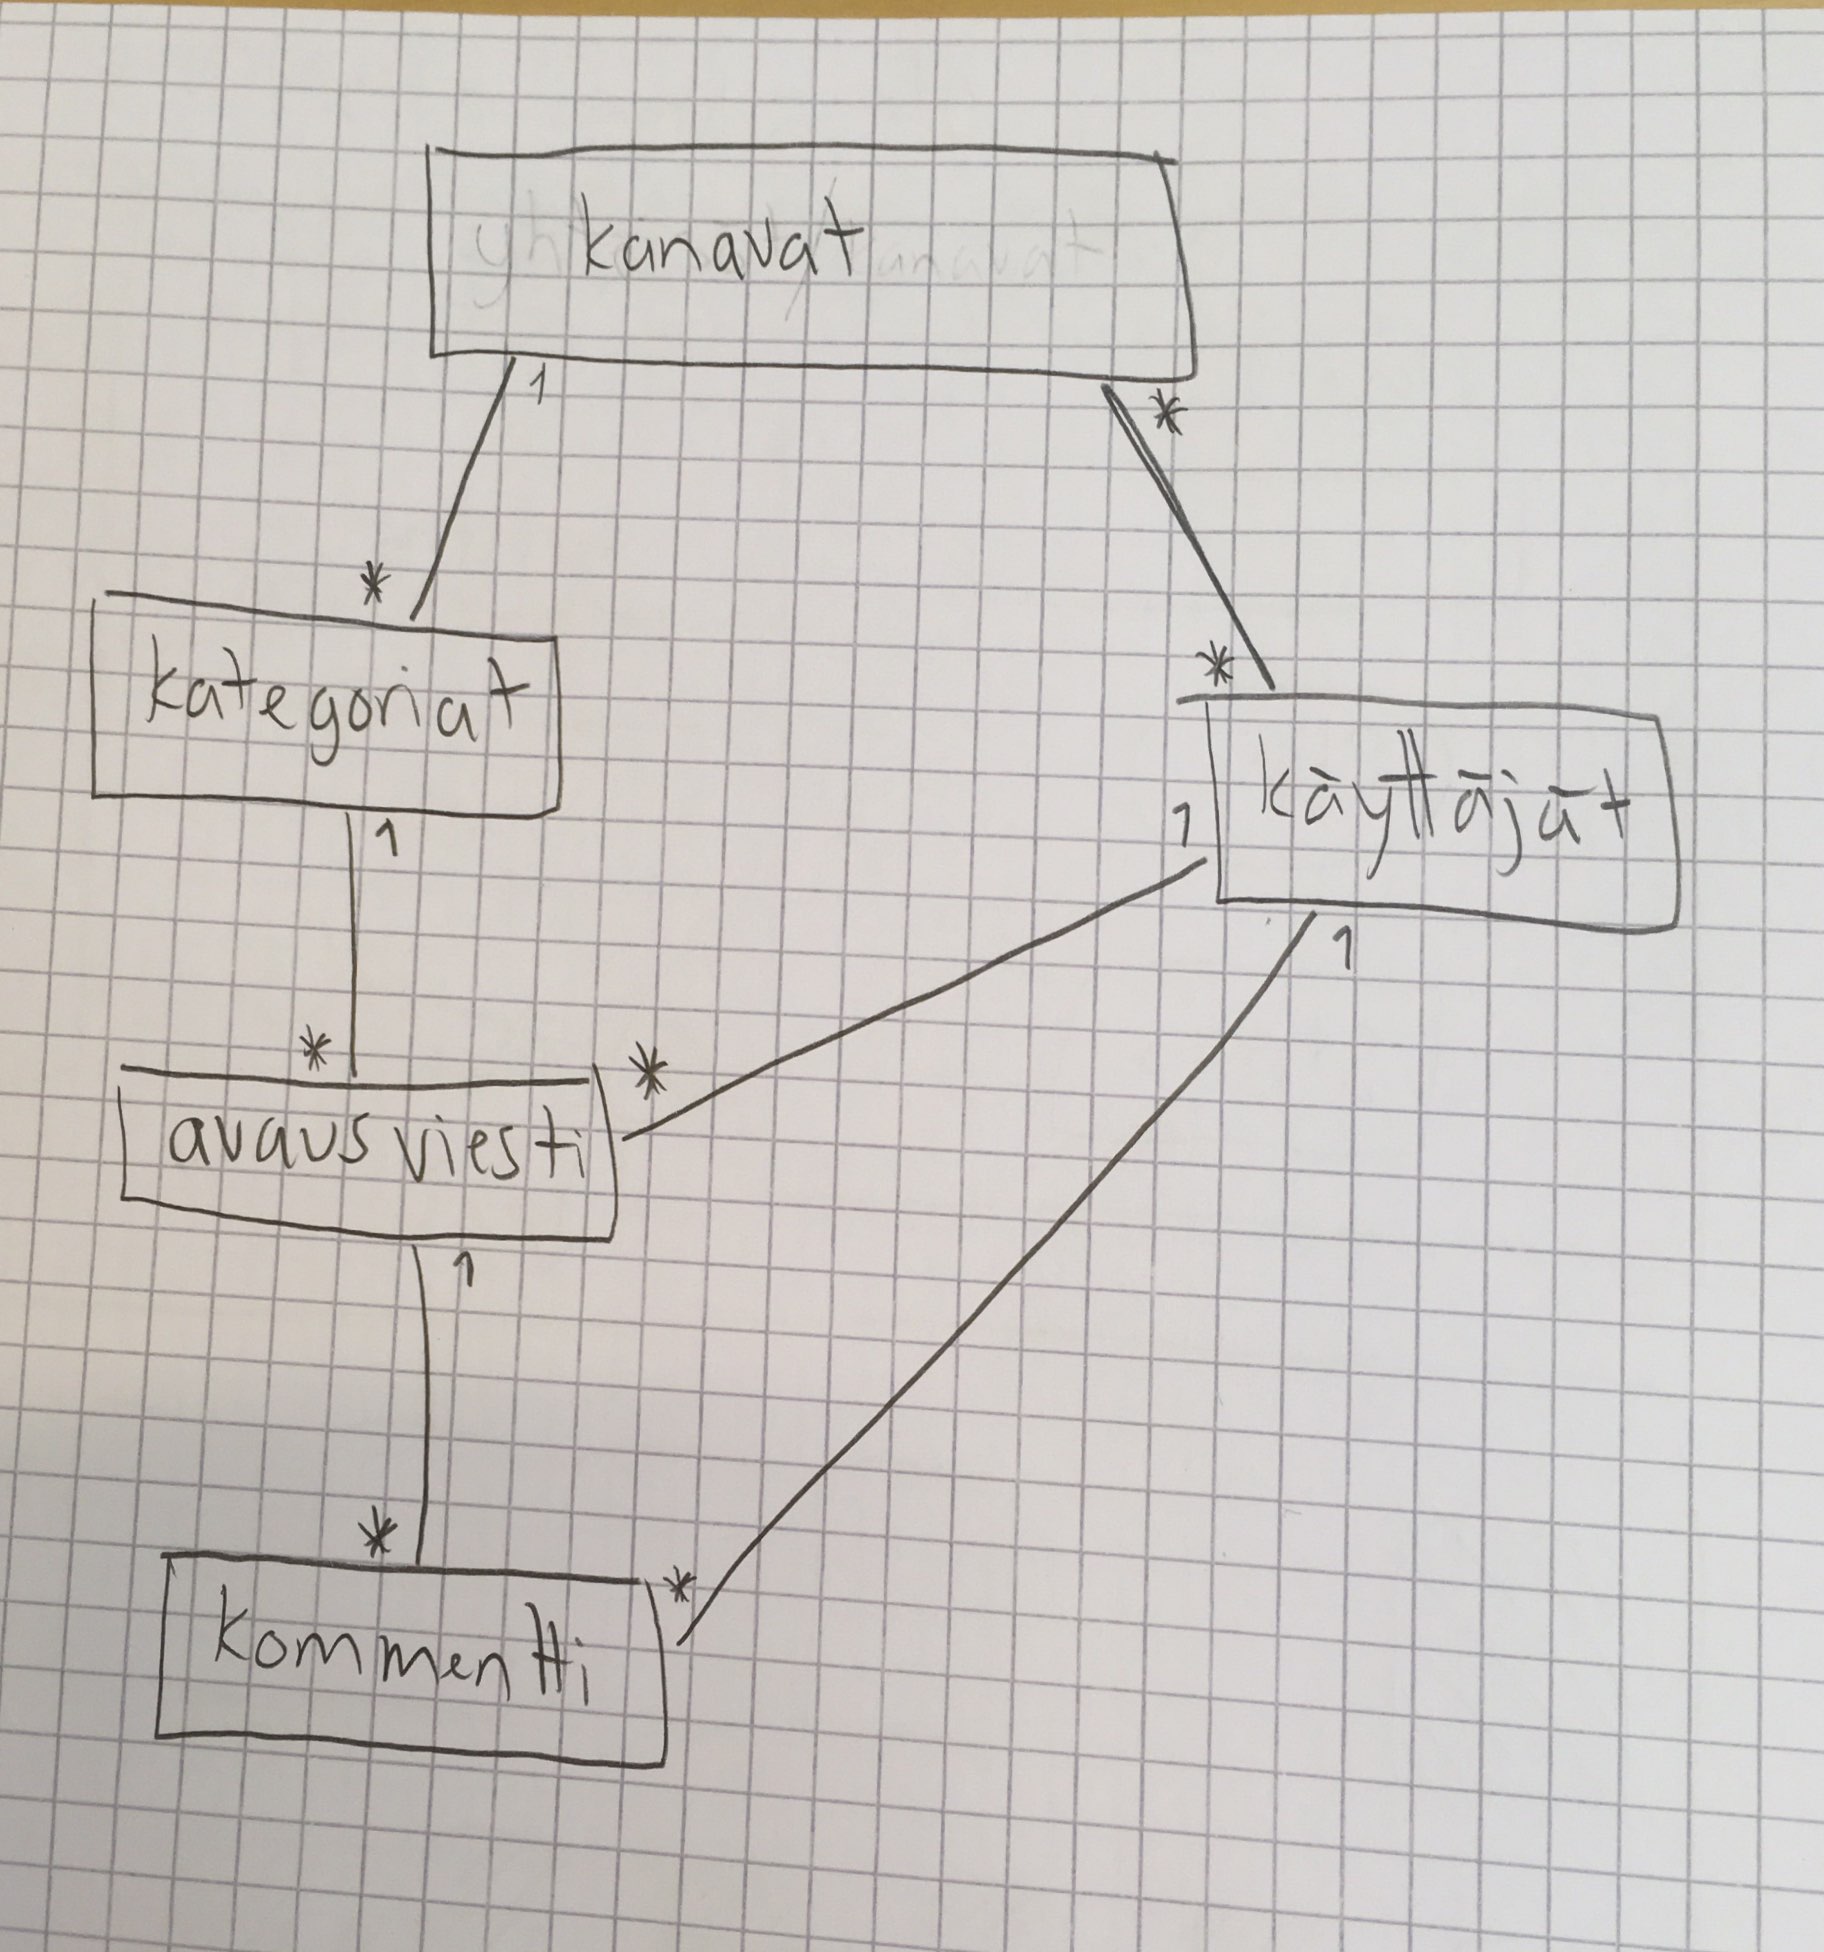 kanavat
1
*
*
*
kategoriat
käyttäjät
1
1
1
*
*
avausviesti
1
*
*
kommentti